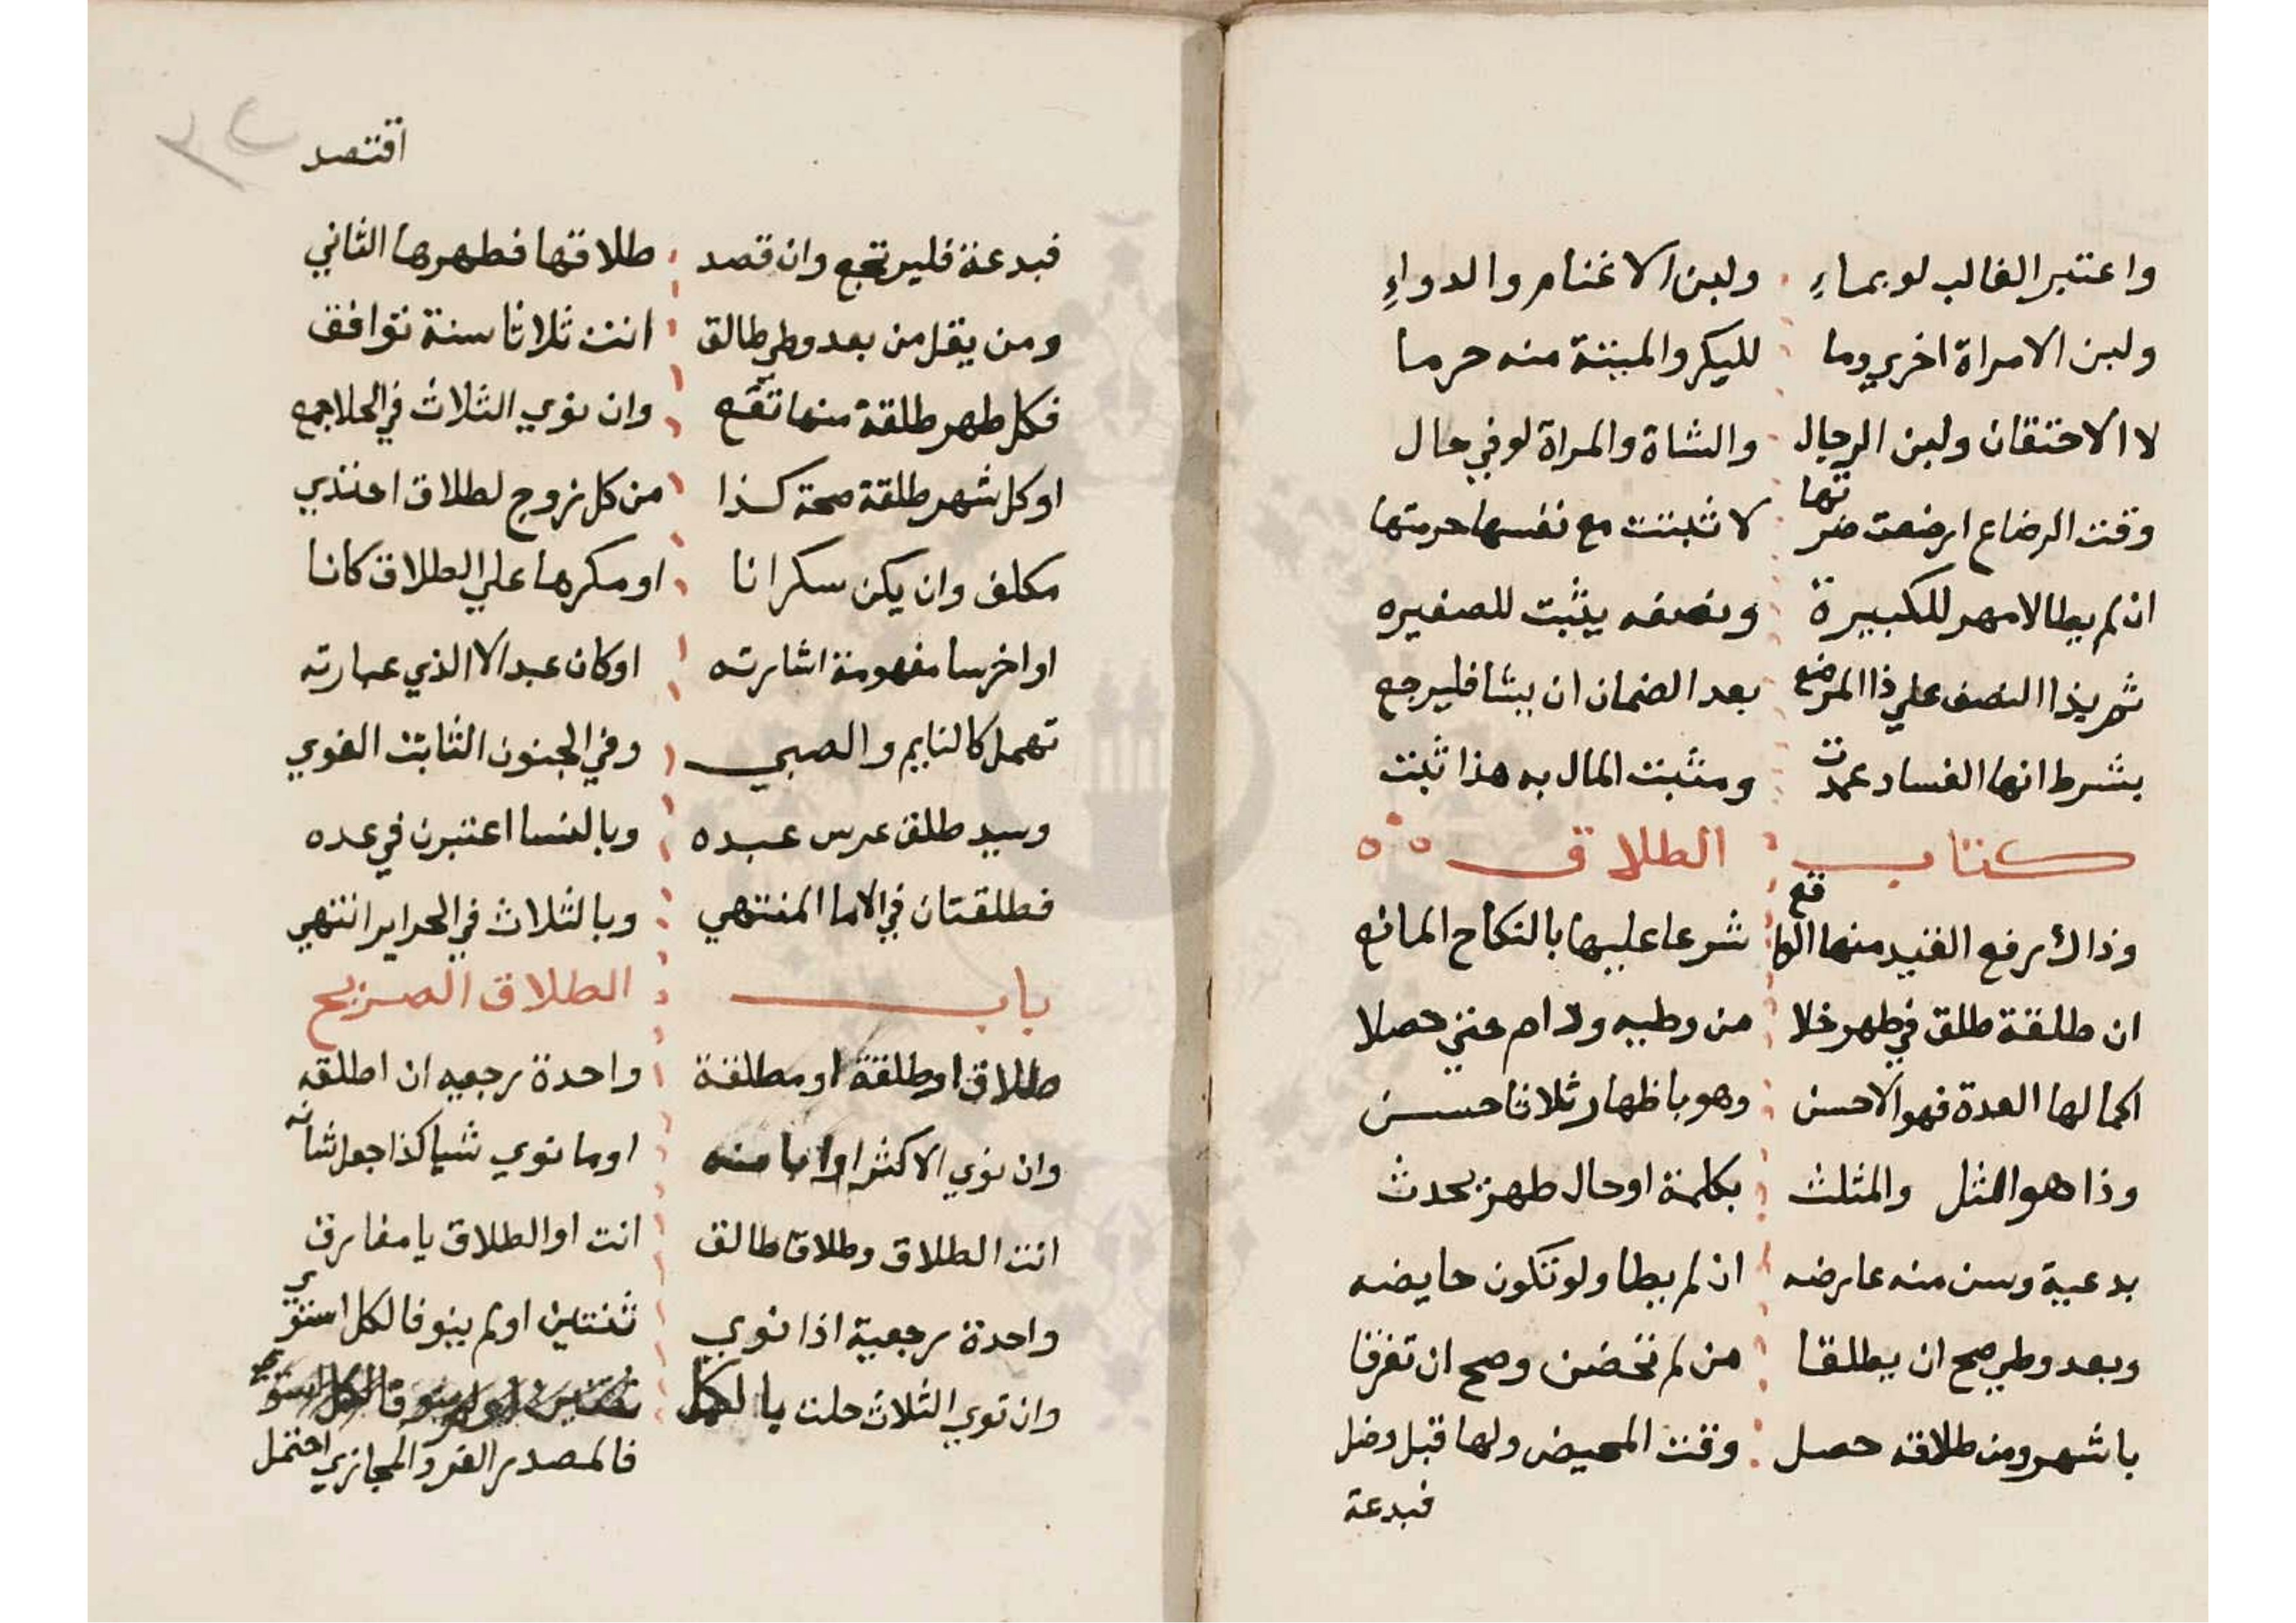 واعتبر الغالب لو بماءِ ولبن الاغنام والدواءِ
ولبن الامراة اخري وما للبكر والميتة منه حرما
لا الاحتقان ولبن الرجال والشاة والمراة لو في حال
وقت الرضاع ارضعت ضرتها لا تثبت مع نفسها حرمتها
ان لم يطا لا مهر للكبيرة ونصفه يثبت للصغيره
ثم بذا النصف علي ذا المرضع بعد الضمان ان يشا فليرجع
بشرط انها الفساد عمدت ومثبت المال به هذا ثبت
كتاب الطلاق
وذاك رفع القيد منها الواقع شرعا عليها بالنكاح المانع
ان طلقة طلق في طهر خلا من وطيه ودام حتي حصلا
اكمالها العدة فهو الاحسن وهو باظهار ثلاثا حسن
وذا هو المثل والمثلث بكلمة او حال طهر يحدث
بدعية وسن منه عارضه ان لم يطا ولو تكون حايضه
وبعد وطي صح ان يطلقا من لم تحضن وصح ان تفرقا
باشهر ومن طلاقه حصل وقت المحيض ولها قبل دخل
فبدعة
اقتصد
فبدعة فليرتجع وان قصد طلاقها فطهرها الثاني
ومن يقل من بعد وطي طالق انت ثلاثا سنة توافق
فكل طهر طلقة منها تقع وان نوي الثلاث في الحلا جمع
او كل شهر طلقة صحة كذا من كل زوج لطلاق احتذي
مكلف وان يكن سكرانا او مكرها علي الطلاق كانا
او اخرسا مفهومة اشارته او كان عبدا لا الذي عبارته
تهمل كالنايم والصبي وفي الجنون الثابت القوي
وسيد طلق عرس عبده وبالنسا اعتبرن في عده
فطلقتان في الاما المنتهي وبالثلاث في الحراير انتهي
باب الطلاق الصريح
طلاق او طلقة او مطلقة واحدة رجعيه ان اطلقه
وان نوي الاكثر او ابا منه او ما نوي شيا كذا جعل شانه
انت الطلاق وطلاق طالق انت او الطلاق يا مفارق
واحدة رجعية اذا نوي ثنتين او لم ينو فالكل استوي
وان نوي الثلاث حلت بالكل
فالمصدر الفرد المجازي احتمل